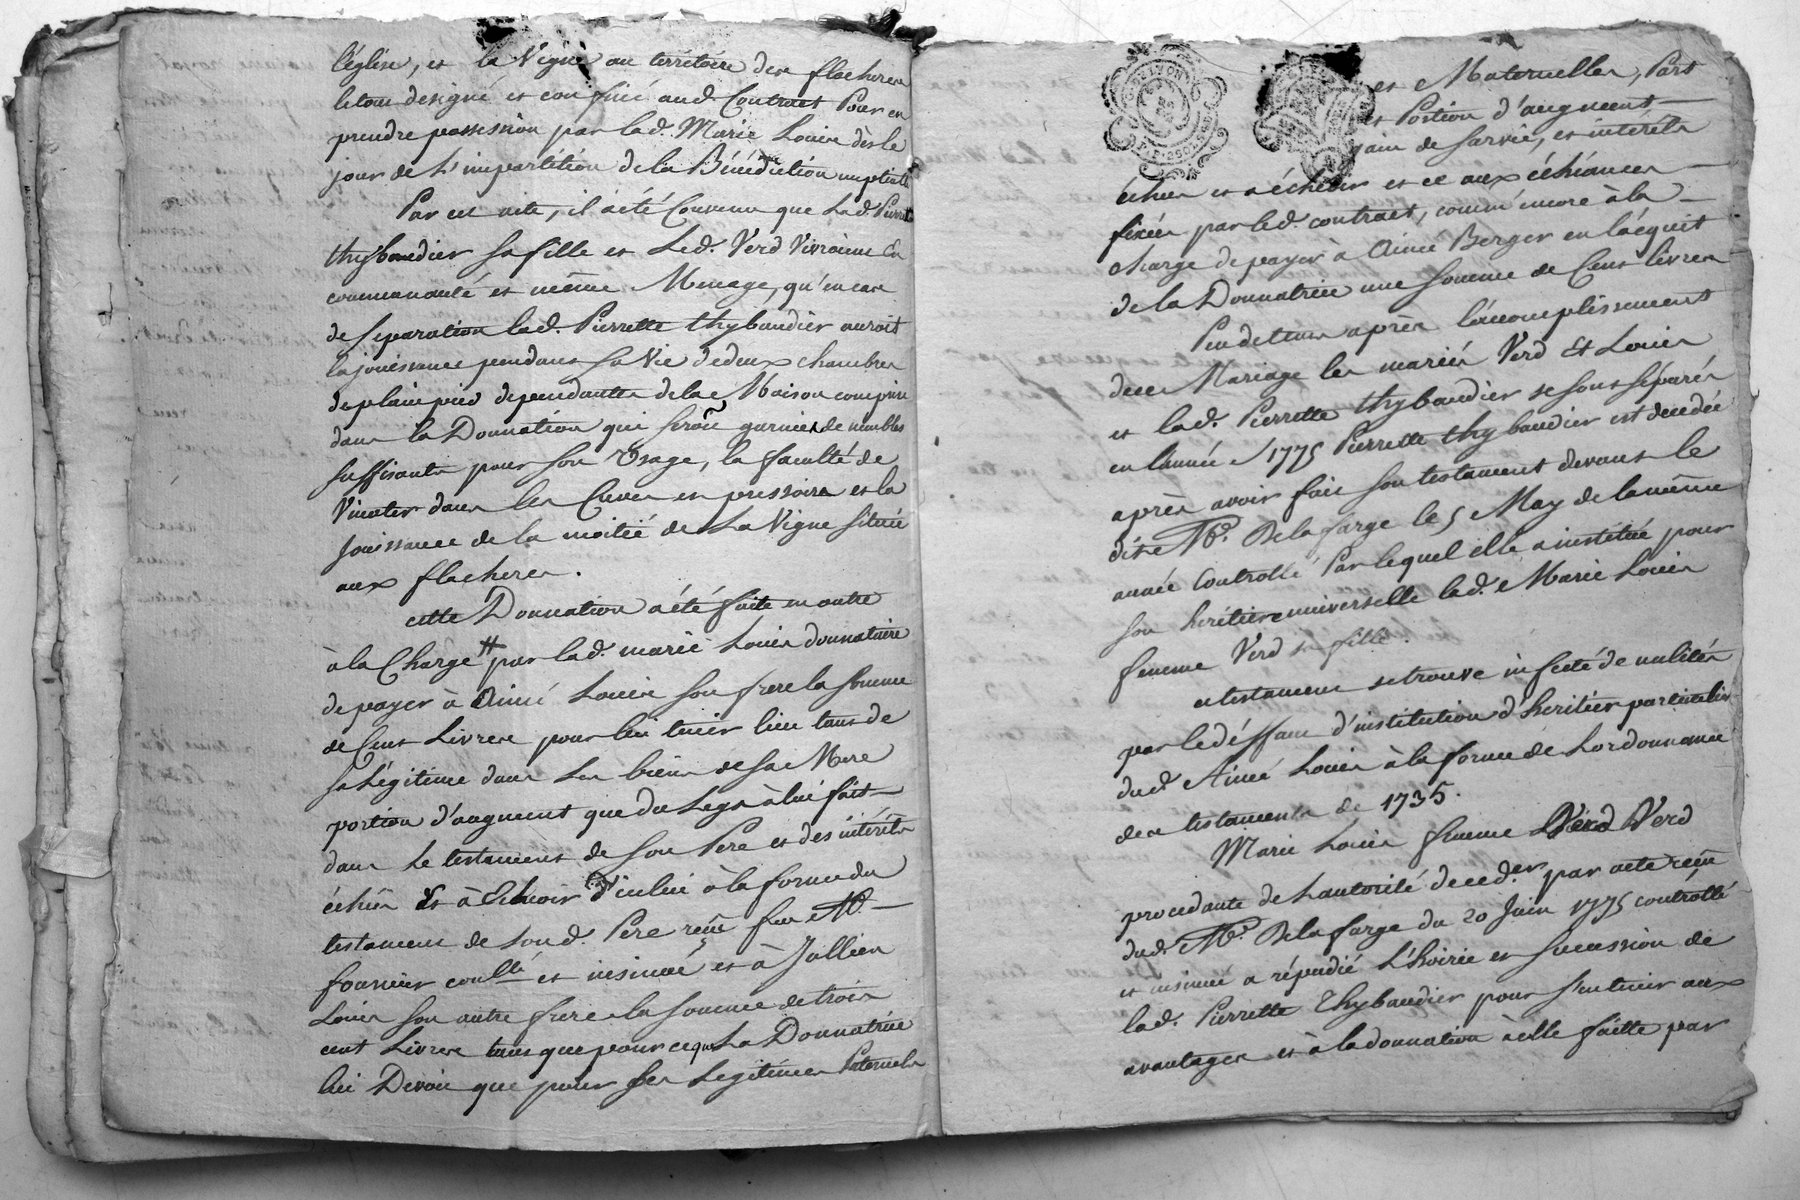 l'église, et la Vigne au térritoire des flacheres
le tout designé et confiné aud. Contract Pour en
prendre possession par lad. Marie Louis dès le
jour de L'impartition de la Bénédiction nuptiale
Par cet acte, il a été Convenu que Lad. Pierrette
thybaudier sa fille et Led. Verd Vivroient En
communauté et même Menage, qu'en cas
de separation lad. Pierrette thybaudier auroit
la jouissance pendant sa Vie de deux chambres
de plain pied dependantes de la Maison comprise
dans la Donnation qui seroñt garnies de meubles
suffisants pour son Usage, la faculté de
Vinoter dans les Cuves et pressoirs et la
Jouissance de la moitié de La Vigne située
aux flacheres.
cette Donnation a été faite en outre
à la Charge # par lad. marie Louis donnataire
de payer à Aimé Louis son frere la somme
de Cent Livres pour lui tenir lieu tant de
sa Légitime dans les biens de sa Mere
portion d'augment que du Legs à lui fait
dans Le testament de son Pere et des intérêts
échus Et à Echeoir d'icului à la forme du
testament de Son d. Pere reçu feu Me.
fournier conllé et insinué et à Jullien
Louis son autre frere la somme de trois
cent Livres tant que pour ce que La Donnatrice
lui Devoit que pour ses Legitimes Paternels
et Maternelles, Part
et Portion d'augment
gain de survie, et intérêts
échus et à échéoir et ce aux échéances
fixées par led. contract, comm'encore à la
charge de payer à Aimé Berger en l'acquit
de la Donnatrice une somme de Cent livres
Peu de tems après l'accomplissement
de ce Mariage les mariés Verd Et Louis
et lad. Pierrette thybaudier se sont séparés
en l'année 1775 Pierrette thybaudier est decedée
après avoir fait son testament devant le
dit Me. Delafarge le 5 May de la même
année Controllé Par lequel elle a institué pour
son heritiere universelle lad. Marie Louis
femme Verd sa fille.
ce testament se trouve infecté de nulités
par le déffaut d'institution d'heritier particulier
dud. Aimé Louis à la forme de Lordonnance
des testaments de 1735.
Marie Louis femme Verd
procedante de Lautorité de ced.er par acte reçu
dud. Me. Delafarge du 20 Juin 1775 controllé
et insinué a répudié L'hoirie et succession de
lad. Pierrette Thybaudier pour s'en tenir aux
avantages et à la donnation à elle faitte par